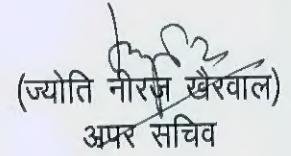 (ज्योति नीरज खैरवाल)
अपर सचिव